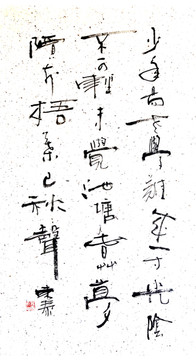 少年易老學難成一寸光陰
不可輕未覺池塘春草夢
階前梧葉已秋聲